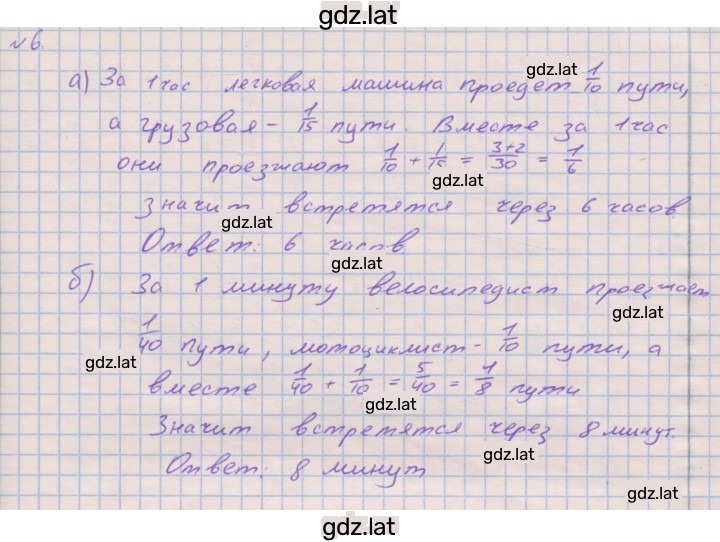 gdz.lat
№6.
gdz.lat
а) За 1 час легковая машина проедет 1/10 пути,
а грузовая - 1/15 пути. Вместе за 1 час
они проезжают 1/10 + 1/15 = 3+2/30 = 1/6
gdz.lat
значит встретятся через 6 часов.
gdz.lat
Ответ: 6 часов.
gdz.lat
б) За 1 минуту велосипедист проезжает
gdz.lat
1/40 пути, мотоциклист - 1/10 пути, а
gdz.lat
вместе 1/40 + 1/10 = 5/40 = 1/8 пути
gdz.lat
Значит встретятся через 8 минут.
gdz.lat
Ответ: 8 минут
gdz.lat
gdz.lat